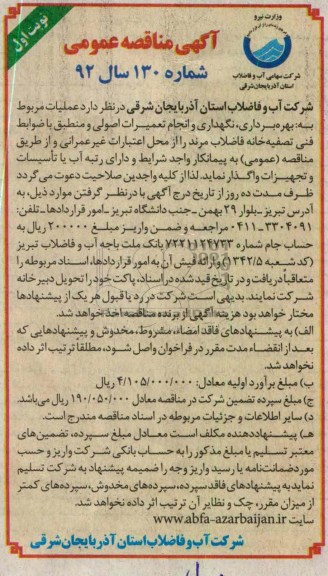 نوبت اول
وزارت نیرو
شرکت سهامی آب و فاضلاب
استان آذربایجان شرقی
آگهی مناقصه عمومی
شماره ۱۳۰ سال ۹۲
شرکت آب و فاضلاب استان آذربایجان شرقی در نظر دارد عملیات مربوط
به: بهره‌برداری، نگهداری و انجام تعمیرات اصولی و منطبق با ضوابط
فنی تصفیه‌خانه فاضلاب مرند را از محل اعتبارات غیرعمرانی و از طریق
مناقصه (عمومی) به پیمانکار واجد شرایط و دارای رتبه آب یا تأسیسات
و تجهیزات واگذار نماید. لذا از کلیه واجدین صلاحیت دعوت می‌گردد
ظرف مدت ده روز از تاریخ درج آگهی با در نظر گرفتن موارد ذیل، به
آدرس تبریز ـ بلوار ۲۹ بهمن ـ جنب دانشگاه تبریز ـ امور قراردادها ـ تلفن:
۳۳۰۴۰۹۱-۰۴۱۱ مراجعه و ضمن واریز مبلغ ۲۰۰۰۰۰ ریال به
حساب جام شماره ۷۲۲۱۱۲۴۷۳۳ بانک ملت باجه آب و فاضلاب تبریز
(کد شعبه ۳۴۲/۵) و ارائه فیش آن به امور قراردادها، اسناد مربوطه را
متعاقباً دریافت و در تاریخ قید شده در اسناد، پاکت خود را تحویل دبیرخانه
شرکت نمایند. بدیهی است شرکت در رد یا قبول هر یک از پیشنهادها
مختار خواهد بود هزینه آگهی از برنده مناقصه اخذ خواهد شد.
الف) به پیشنهادهای فاقد امضاء، مشروط، مخدوش و پیشنهادهایی که
بعد از انقضاء مدت مقرر در فراخوان واصل شود، مطلقاً ترتیب اثر داده
نخواهد شد.
ب) مبلغ برآورد اولیه معادل: ۴/۱۰۵/۰۰۰/۰۰۰ ریال
ج) مبلغ سپرده تضمین شرکت در مناقصه معادل ۱۹۰/۰۵۰/۰۰۰ ریال می‌باشد.
د) سایر اطلاعات و جزئیات مربوطه در اسناد مناقصه مندرج است.
هـ) پیشنهاددهنده مکلف است معادل مبلغ سپرده، تضمین‌های
معتبر تسلیم یا مبلغ مذکور را به حساب بانکی شرکت واریز و حسب
مورد ضمانت‌نامه یا رسید واریز وجه را ضمیمه پیشنهاد به شرکت تسلیم
نماید به پیشنهادهای فاقد سپرده، سپرده‌های مخدوش، سپرده‌های کمتر
از میزان مقرر، چک و نظایر آن ترتیب اثر داده نخواهد شد.
سایت www.abfa-azarbaijan.ir
شرکت آب و فاضلاب استان آذربایجان شرقی